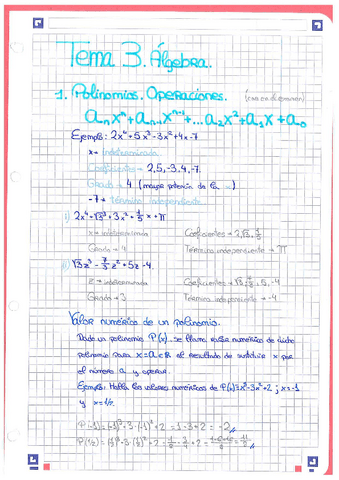 Tema 3. Álgebra.
1. Polinomios. Operaciones.
aₙxⁿ + aₙ₋₁xⁿ⁻¹ + ... a₂x² + a₁x + a₀
Ejemplo: 2x⁴ + 5x³ - 3x² + 4x - 7
x → indeterminada
Coeficientes → 2, 5, -3, 4, -7.
Grado → 4 (mayor potencia de la x)
-7 → término independiente
x → indeterminada Coeficientes →
Grado → 4 Término independiente → π
z → indeterminada Coeficientes →
Grado → 3 Término independiente → -4
Valor numérico de un polinomio.
Dado un polinomio P(x), se llama valor numérico de dicho
polinomio para x = a ∈ ℝ al resultado de sustituir x por
el número a y operar.
Ejemplo: Halla los valores numéricos de P(x) = x³ - 3x² + 2; x = -1
y x = 1/2.